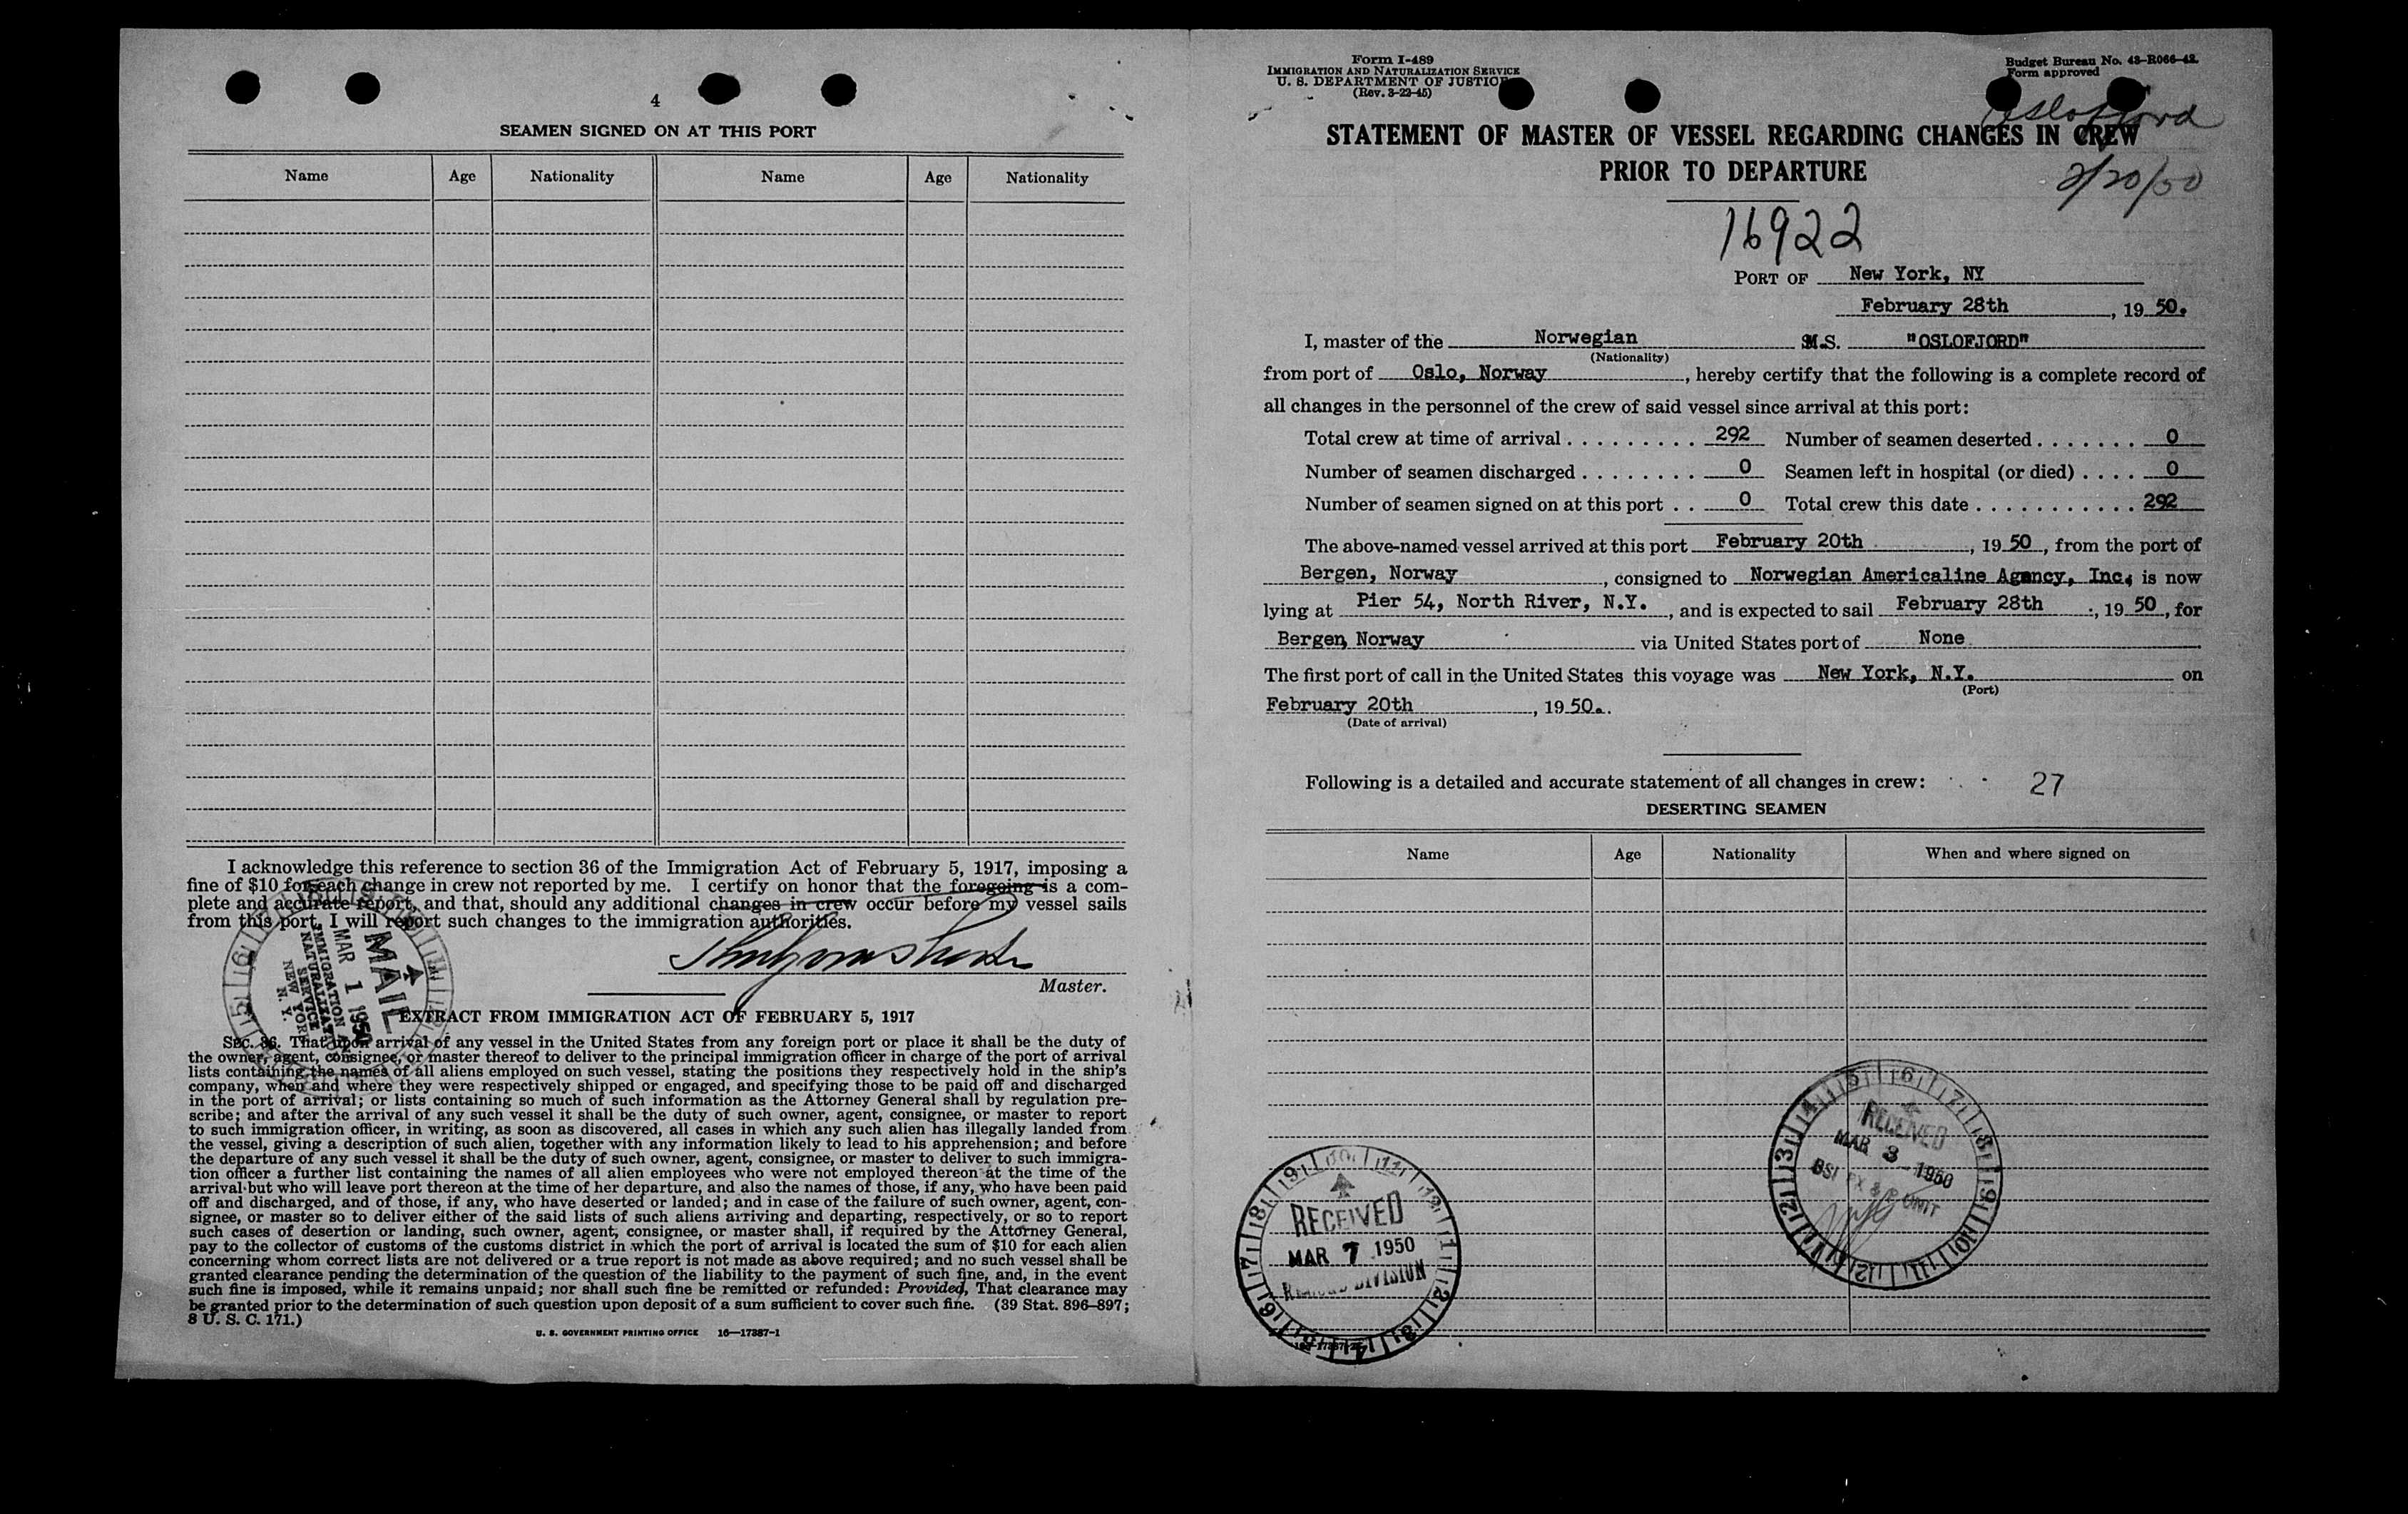 4
SEAMEN SIGNED ON AT THIS PORT
Name Age Nationality Name Age Nationality
I acknowledge this reference to section 36 of the Immigration Act of February 5, 1917, imposing a
fine of $10 for each change in crew not reported by me. I certify on honor that the foregoing is a com-
plete and accurate report, and that, should any additional changes in crew occur before my vessel sails
from this port, I will report such changes to the immigration authorities.
Master.
MAIL
MAR 1 1950
IMMIGRATION
NATURALIZAT
SERVICE
NEW YORK
N. Y.
EXTRACT FROM IMMIGRATION ACT OF FEBRUARY 5, 1917
SEC. 36. That upon arrival of any vessel in the United States from any foreign port or place it shall be the duty of
the owner, agent, consignee, or master thereof to deliver to the principal immigration officer in charge of the port of arrival
lists containing the names of all aliens employed on such vessel, stating the positions they respectively hold in the ship's
company, when and where they were respectively shipped or engaged, and specifying those to be paid off and discharged
in the port of arrival; or lists containing so much of such information as the Attorney General shall by regulation pre-
scribe; and after the arrival of any such vessel it shall be the duty of such owner, agent, consignee, or master to report
to such immigration officer, in writing, as soon as discovered, all cases in which any such alien has illegally landed from
the vessel, giving a description of such alien, together with any information likely to lead to his apprehension; and before
the departure of any such vessel it shall be the duty of such owner, agent, consignee, or master to deliver to such immigra-
tion officer a further list containing the names of all alien employees who were not employed thereon at the time of the
arrival but who will leave port thereon at the time of her departure, and also the names of those, if any, who have been paid
off and discharged, and of those, if any, who have deserted or landed; and in case of the failure of such owner, agent, con-
signee, or master so to deliver either of the said lists of such aliens arriving and departing, respectively, or so to report
such cases of desertion or landing, such owner, agent, consignee, or master shall, if required by the Attorney General,
pay to the collector of customs of the customs district in which the port of arrival is located the sum of $10 for each alien
concerning whom correct lists are not delivered or a true report is not made as above required; and no such vessel shall be
granted clearance pending the determination of the question of the liability to the payment of such fine, and, in the event
such fine is imposed, while it remains unpaid; nor shall such fine be remitted or refunded: Provided, That clearance may
be granted prior to the determination of such question upon deposit of a sum sufficient to cover such fine. (39 Stat. 896–897;
8 U. S. C. 171.)
U. S. GOVERNMENT PRINTING OFFICE 16—17387-1
Form I-489
IMMIGRATION AND NATURALIZATION SERVICE
U. S. DEPARTMENT OF JUSTICE
(Rev. 3-22-45)
Budget Bureau No. 43-R066-42.
Form approved
Oslofjord
STATEMENT OF MASTER OF VESSEL REGARDING CHANGES IN CREW
PRIOR TO DEPARTURE
2/20/50
16922
PORT OF New York, NY
February 28th, 19 50.
I, master of the Norwegian M.S. "OSLOFJORD"
(Nationality)
from port of Oslo, Norway, hereby certify that the following is a complete record of
all changes in the personnel of the crew of said vessel since arrival at this port:
Total crew at time of arrival . . . . . . . . . 292 Number of seamen deserted . . . . . . . 0
Number of seamen discharged . . . . . . . . 0 Seamen left in hospital (or died) . . . . 0
Number of seamen signed on at this port . . 0 Total crew this date . . . . . . . . . . . 292
The above-named vessel arrived at this port February 20th, 19 50, from the port of
Bergen, Norway, consigned to Norwegian Americaline Agency, Inc, is now
lying at Pier 54, North River, N.Y., and is expected to sail February 28th, 19 50, for
Bergen, Norway via United States port of None
The first port of call in the United States this voyage was New York, N.Y. on
(Port)
February 20th, 19 50.
(Date of arrival)
Following is a detailed and accurate statement of all changes in crew: 27
DESERTING SEAMEN
Name Age Nationality When and where signed on
RECEIVED
MAR 3 1950
BSI EX & P UNIT
RECEIVED
MAR 7 1950
DIVISION